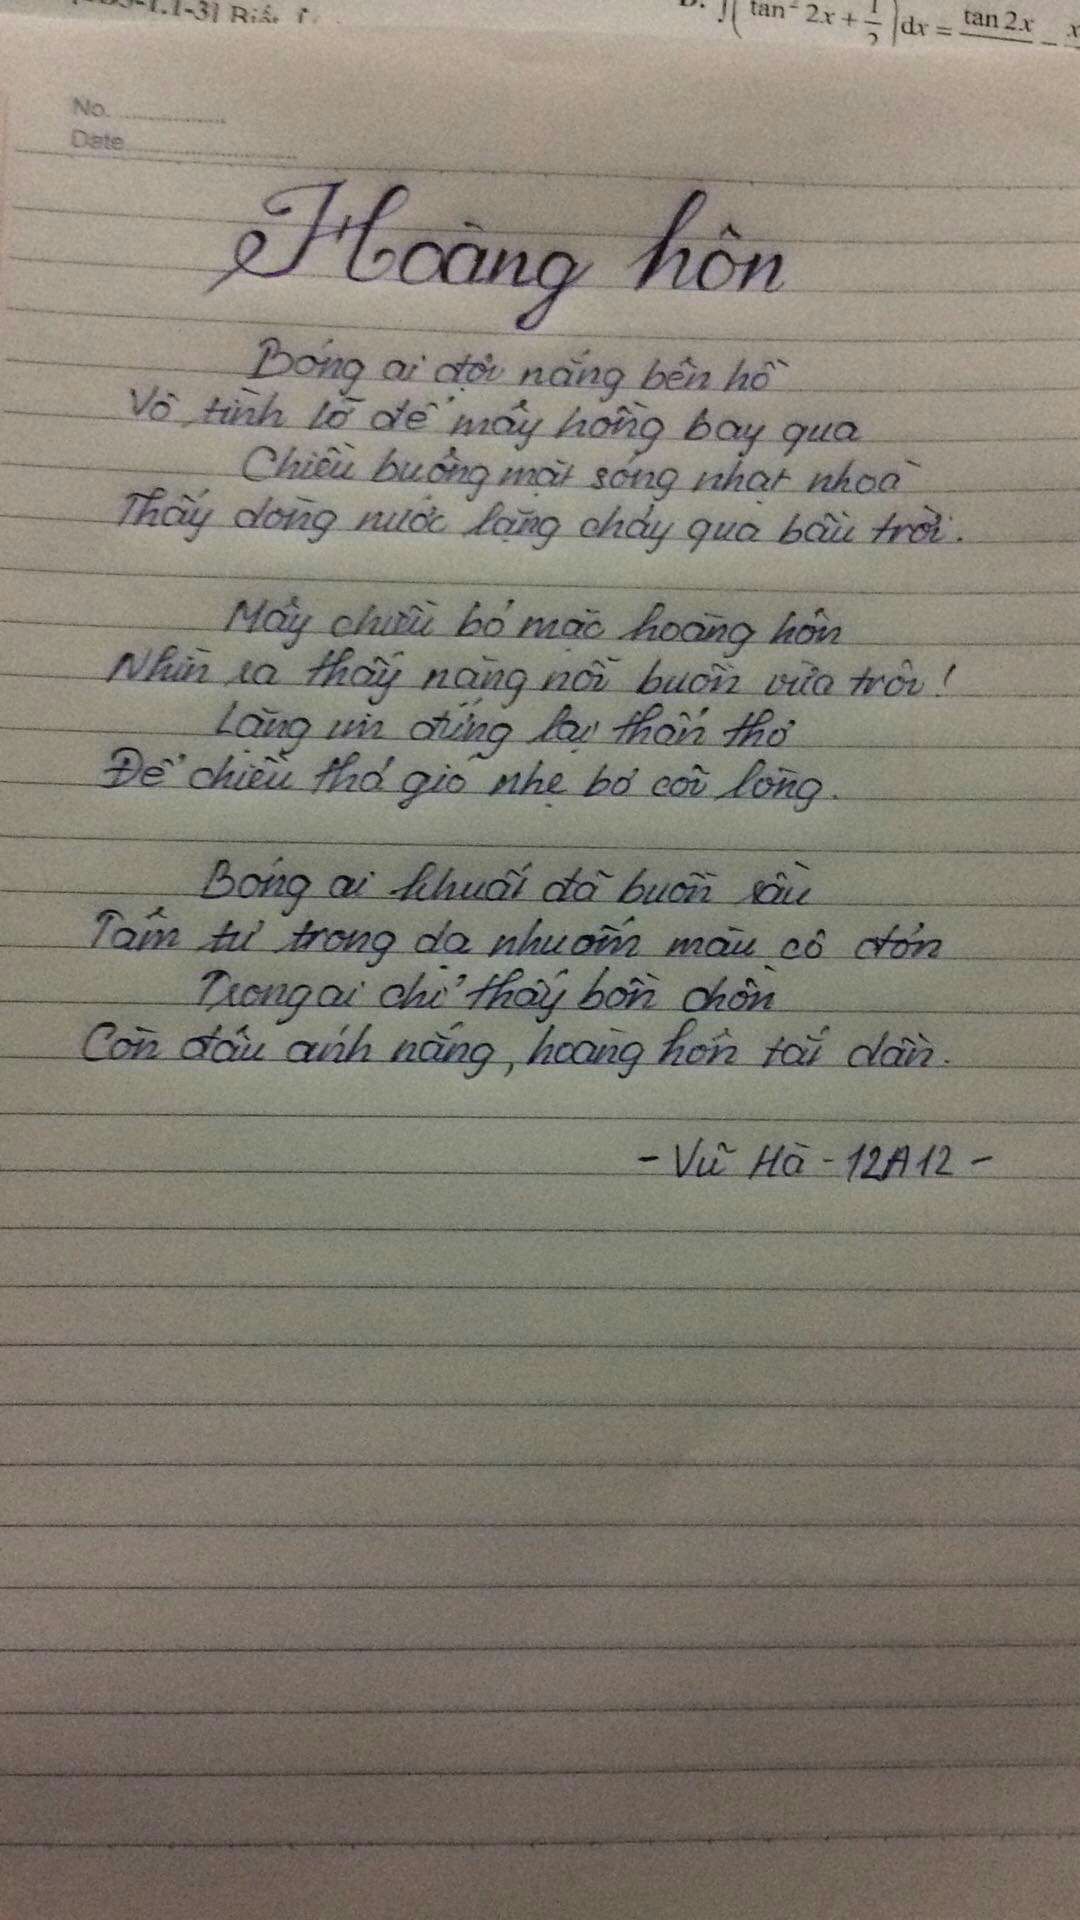 D. ∫(tan² 2x + 1/2)dx = tan 2x – x
No.
Date
Hoàng hôn
Bóng ai đợi nắng bên hồ
Vô tình lỡ để mây hồng bay qua
Chiều buông mặt sóng nhạt nhoà
Thấy dòng nước lặng chảy qua bầu trời.
Mây chiều bỏ mặc hoàng hôn
Nhìn ra thấy nàng nỗi buồn vừa trôi!
Lặng im đứng lại thẩn thơ
Để chiều thả gió nhẹ bơ cõi lòng.
Bóng ai khuất đã buồn sầu
Tâm tư trong dạ nhuốm màu cô đơn
Trong ai chỉ thấy bồn chồn
Còn đâu ánh nắng, hoàng hôn tắt dần.
- Vũ Hà - 12A12 -